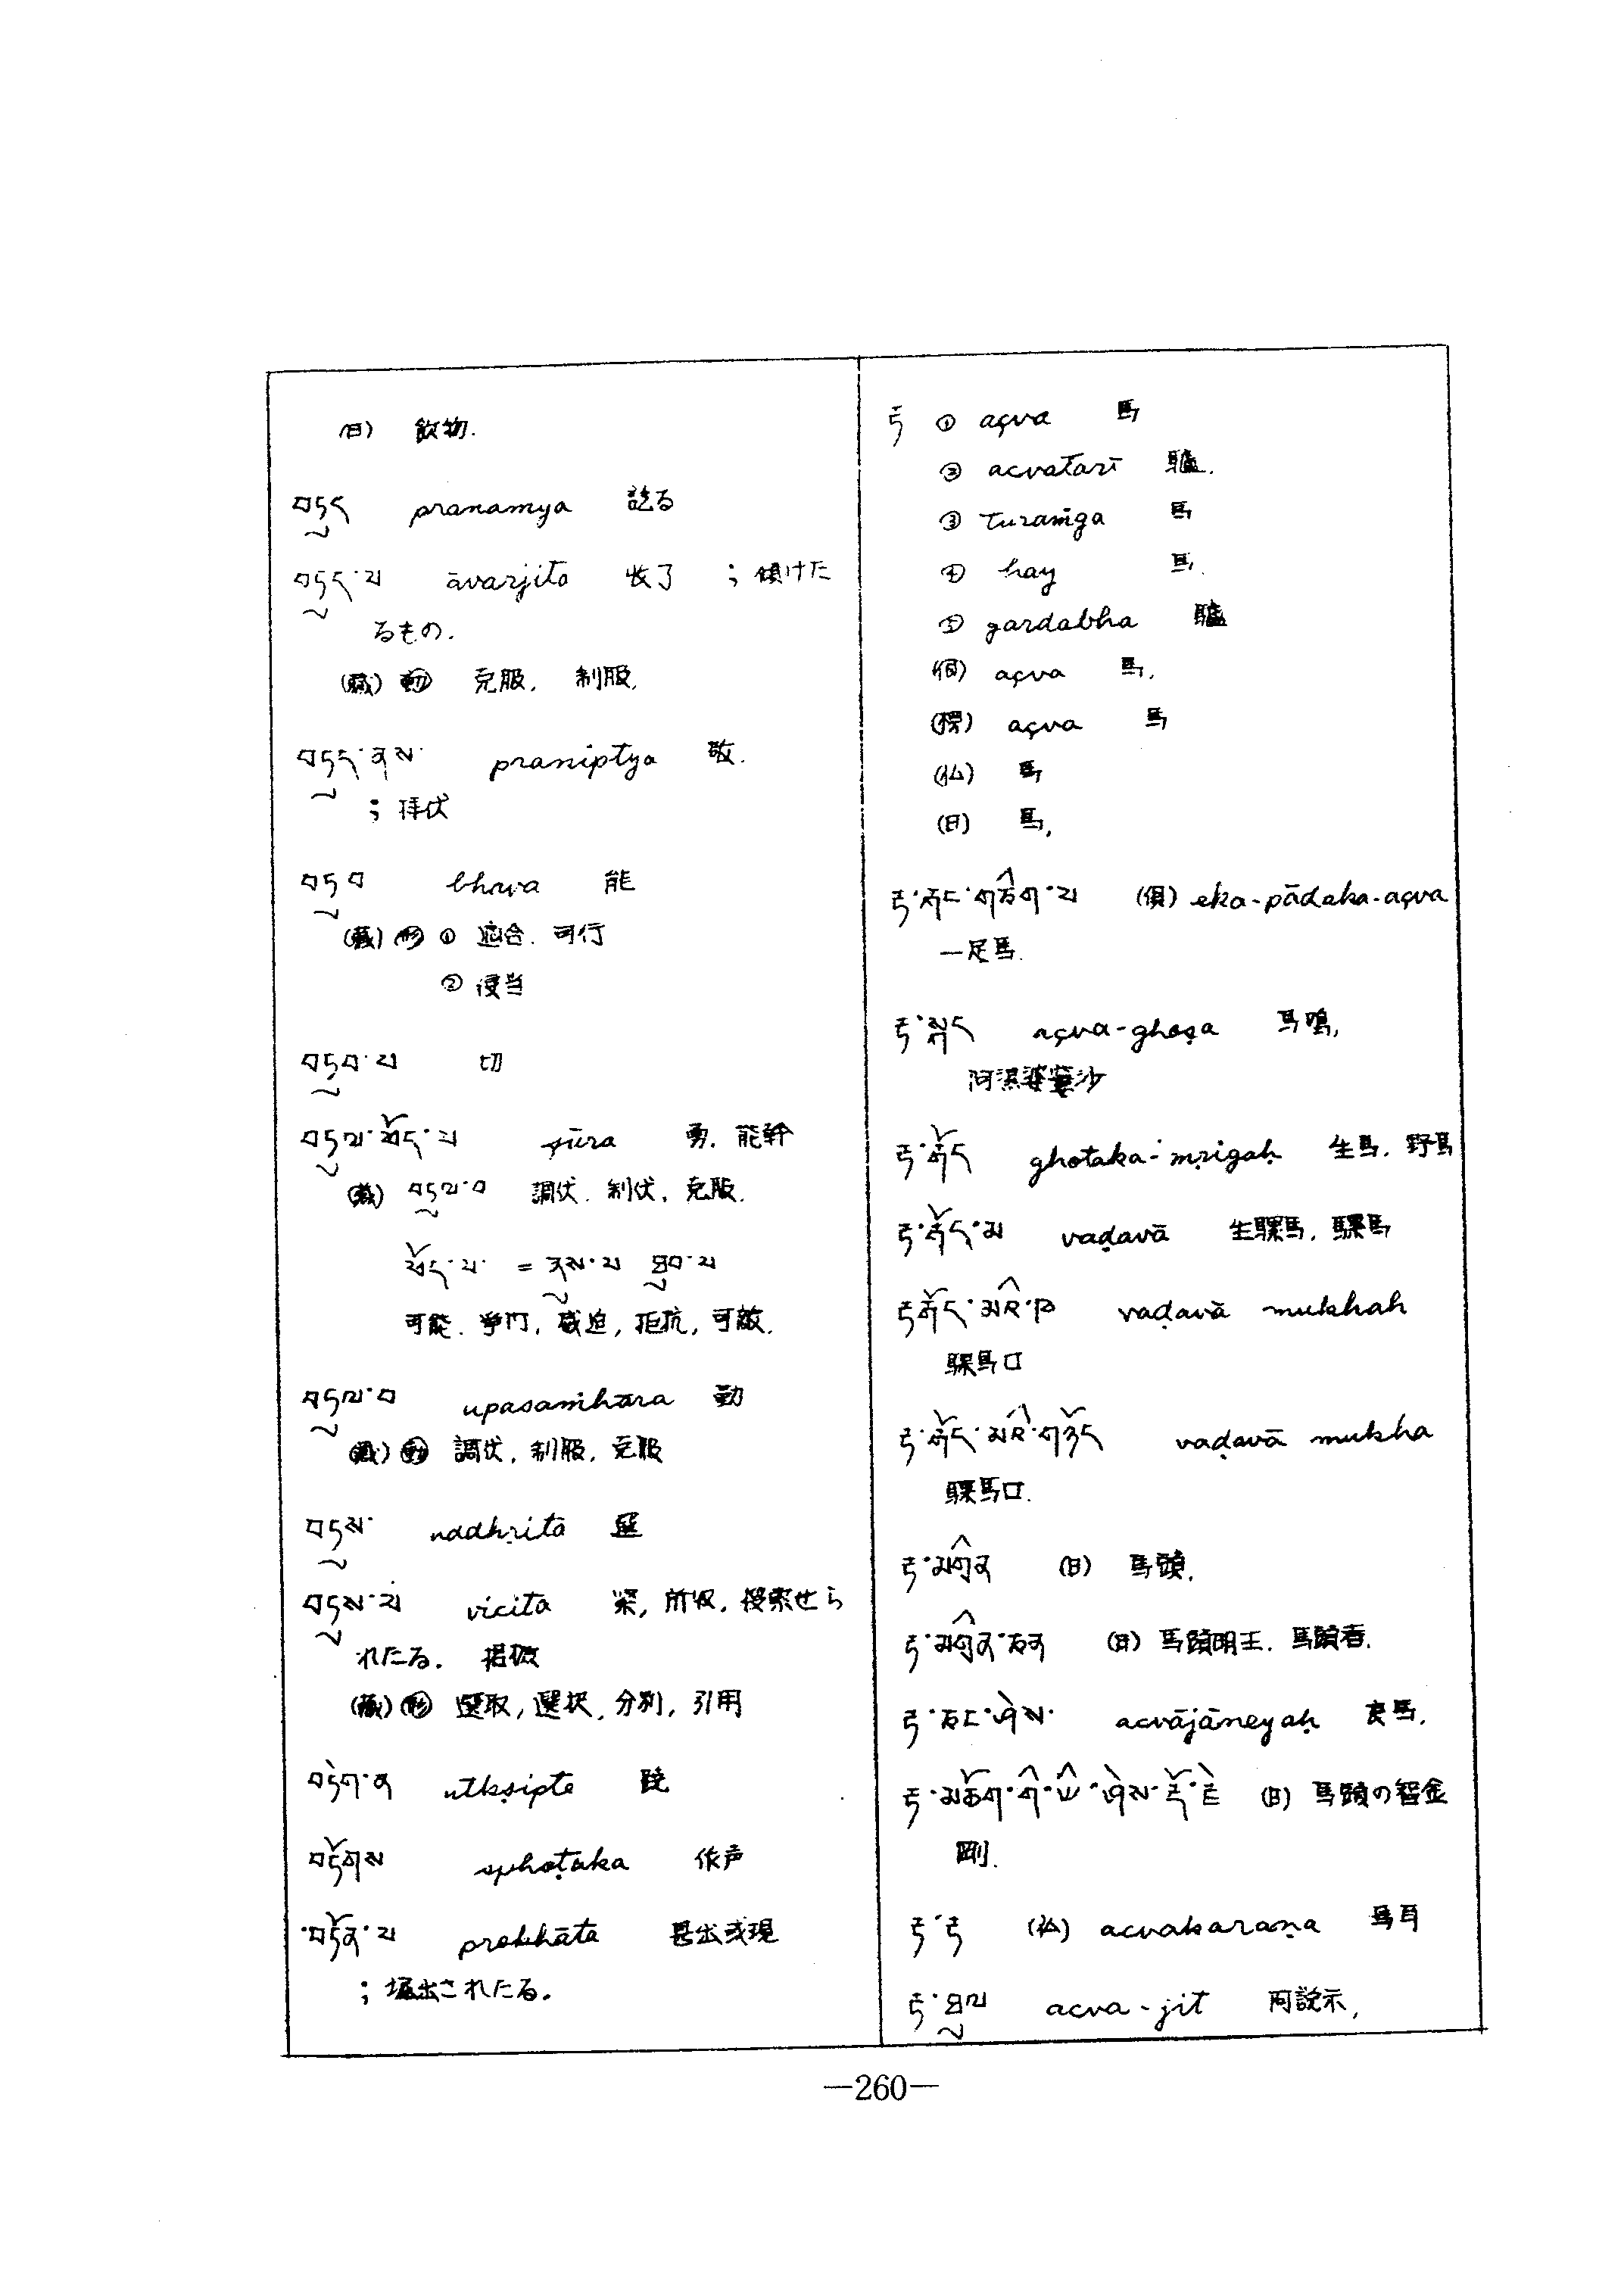 (日) 飲物.
བཏུད pranamya 訖る
བཏུད་པ āvarjita 收了 ; 傾けた
るもの.
(藏) 動 克服. 制服.
བཏུད་ནས་ praniptya 敬.
; 拝伏
བཏུབ bhava 能
(藏) 形 ① 適合. 可行
②
བཏུབ་པ 切
བཏུལ་ཕོད་པ śūra 勇. 能幹
(藏) བཏུལ་བ 調伏. 制伏, 克服.
ཕོད་པ་ = ནུས་པ ཐུབ་པ
可能. 爭鬥, 威迫, 抵抗, 可敵.
བཏུལ་བ upasaṁhāra 動
(藏) 動 調伏, 制服, 克服
བཏུས་ uddhṛita 選
བཏུས་པ vicita 所収, 捜索せら
れたる.
(藏) 形 選取, 選択, 分別, 引用
བཏེག་ན utkṣipte
བཏོགས sphoṭaka 作声
བཏོན་པ prakhāta 甚出或現
; 堀出されたる.
རྟ ① açva 馬
② acvatarī 驢.
③ turaṁga 馬
④ hay 馬.
⑤ gardabha 驢
(倶) açva 馬.
(標) açva 馬
(仏) 馬
(日) 馬,
རྟ་རྐང་གཅིག་པ (倶) eka-pādaka-açva
一足馬.
རྟ་སྐད açva-ghoṣa 馬鳴,
阿濕婆窶沙
རྟ་རྒོད ghotaka-mṛigaḥ 生馬. 野馬
རྟ་རྒོད་མ vaḍavā 生騍馬, 騍馬
རྟ་རྒོད་མའི་ཁ vaḍavā mukhah
騍馬口
རྟ་རྒོད་མའི་གདོང vaḍavā mukha
騍馬口.
རྟ་མགྲིན (日) 馬頭,
རྟ་མགྲིན་ཅན (日) 馬頭明王. 馬頭者.
རྟ་ཅང་ཤེས་ acvājāneyaḥ 良馬.
རྟ་མཆོག་གི་ཡི་ཤེས་རྡོ་རྗེ (日) 馬頭の智金
剛.
རྟ་རྣ (仏) acvakaraṇa 馬耳
རྟ་ཐུལ acva-jit 阿說示,
—260—